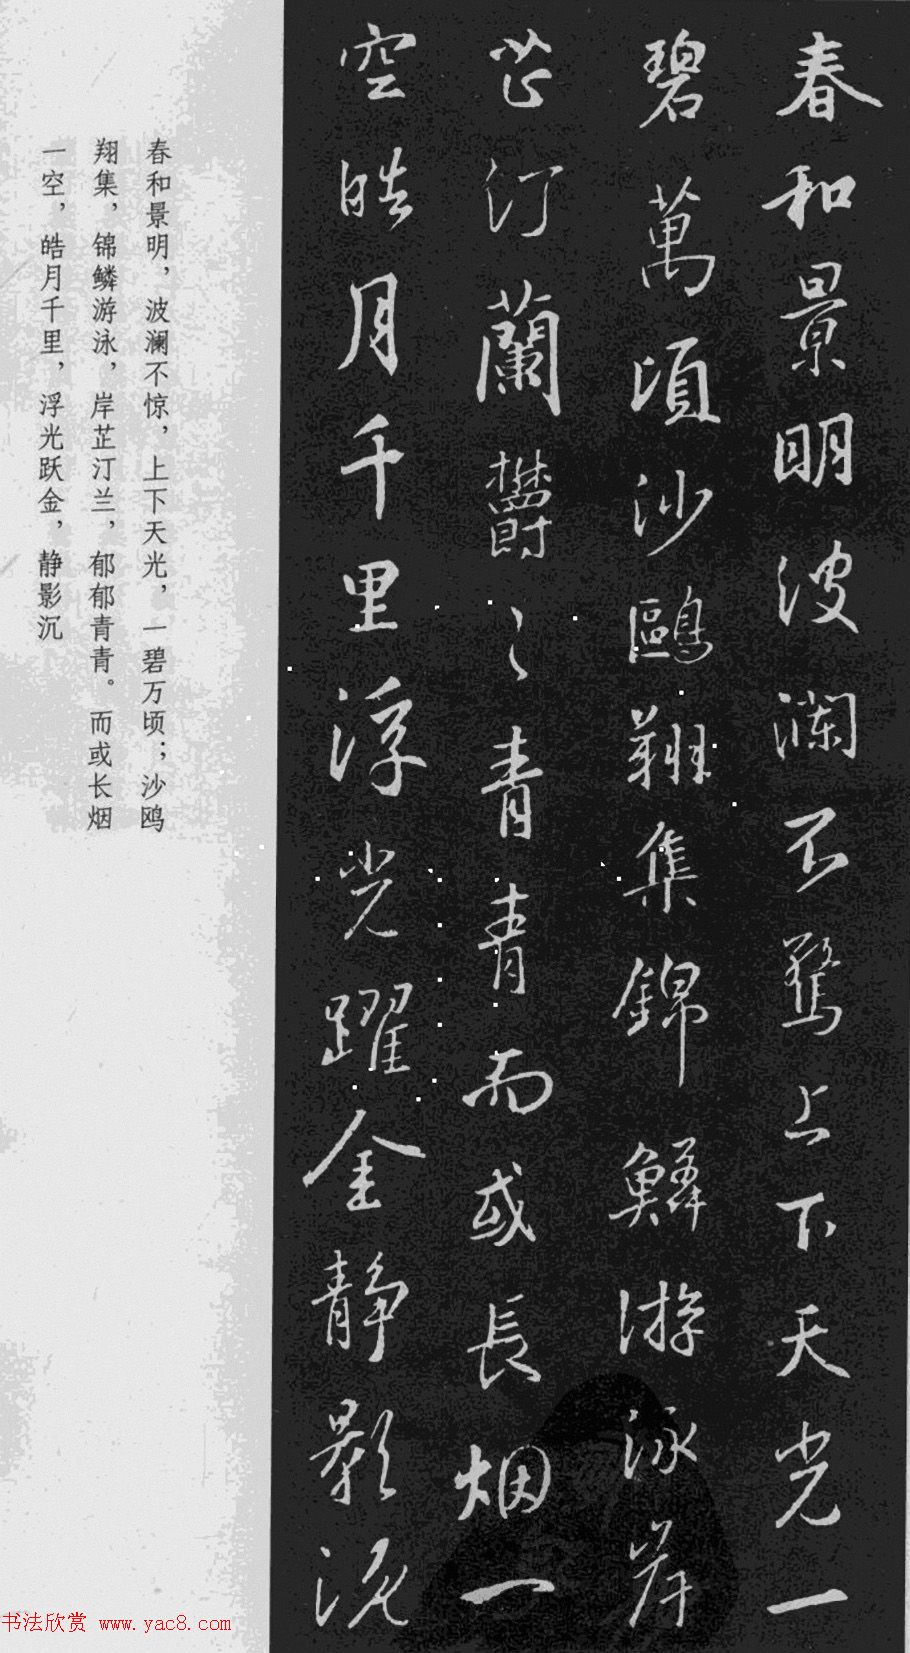 春和景明波瀾不驚上下天光一
碧萬頃沙鷗翔集錦鱗游泳岸
芷汀蘭欝〻青青而或長烟一
空皓月千里浮光躍金静影沉
春和景明，波澜不惊，上下天光，一碧万顷；沙鸥
翔集，锦鳞游泳，岸芷汀兰，郁郁青青。而或长烟
一空，皓月千里，浮光跃金，静影沉
书法欣赏 www.yac8.com